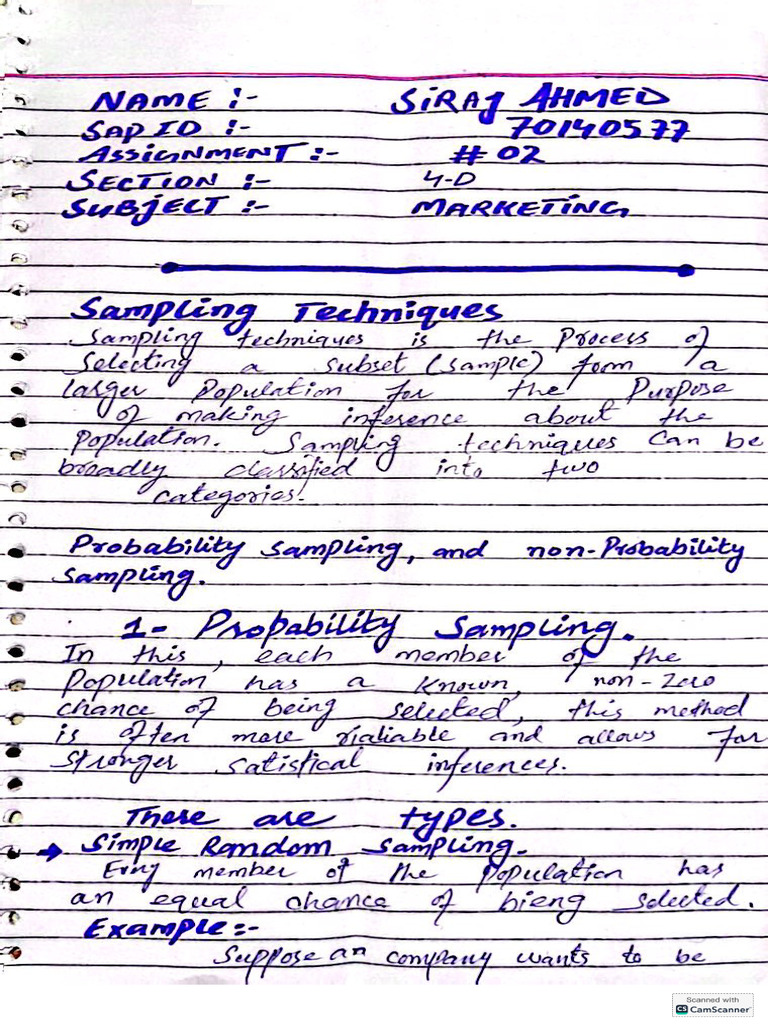 NAME :- SiRAJ AHMED
SAP ID :- 70140577
ASSIGNMENT :- # 02
SECTION :- 4-D
SUBJECT :- MARKETING
Sampling Techniques
Sampling techniques is the Process of
Selecting a subset (sample) form a
larger Population for the Purpose
of making inference about the
Population. Sampling techniques can be
broadly classified into two
categories.
Probability sampling, and non-Probability
sampling.
1- Probability Sampling.
In this, each member of the
Population has a known, non-zero
chance of being selected, this method
is often more rialiable and allows for
stronger satistical inferences.
There are types.
→ Simple Random Sampling.
Every member of the Population has
an equal chance of bieng selected.
Example:-
Suppose an company wants to be
Scanned with
CS CamScanner